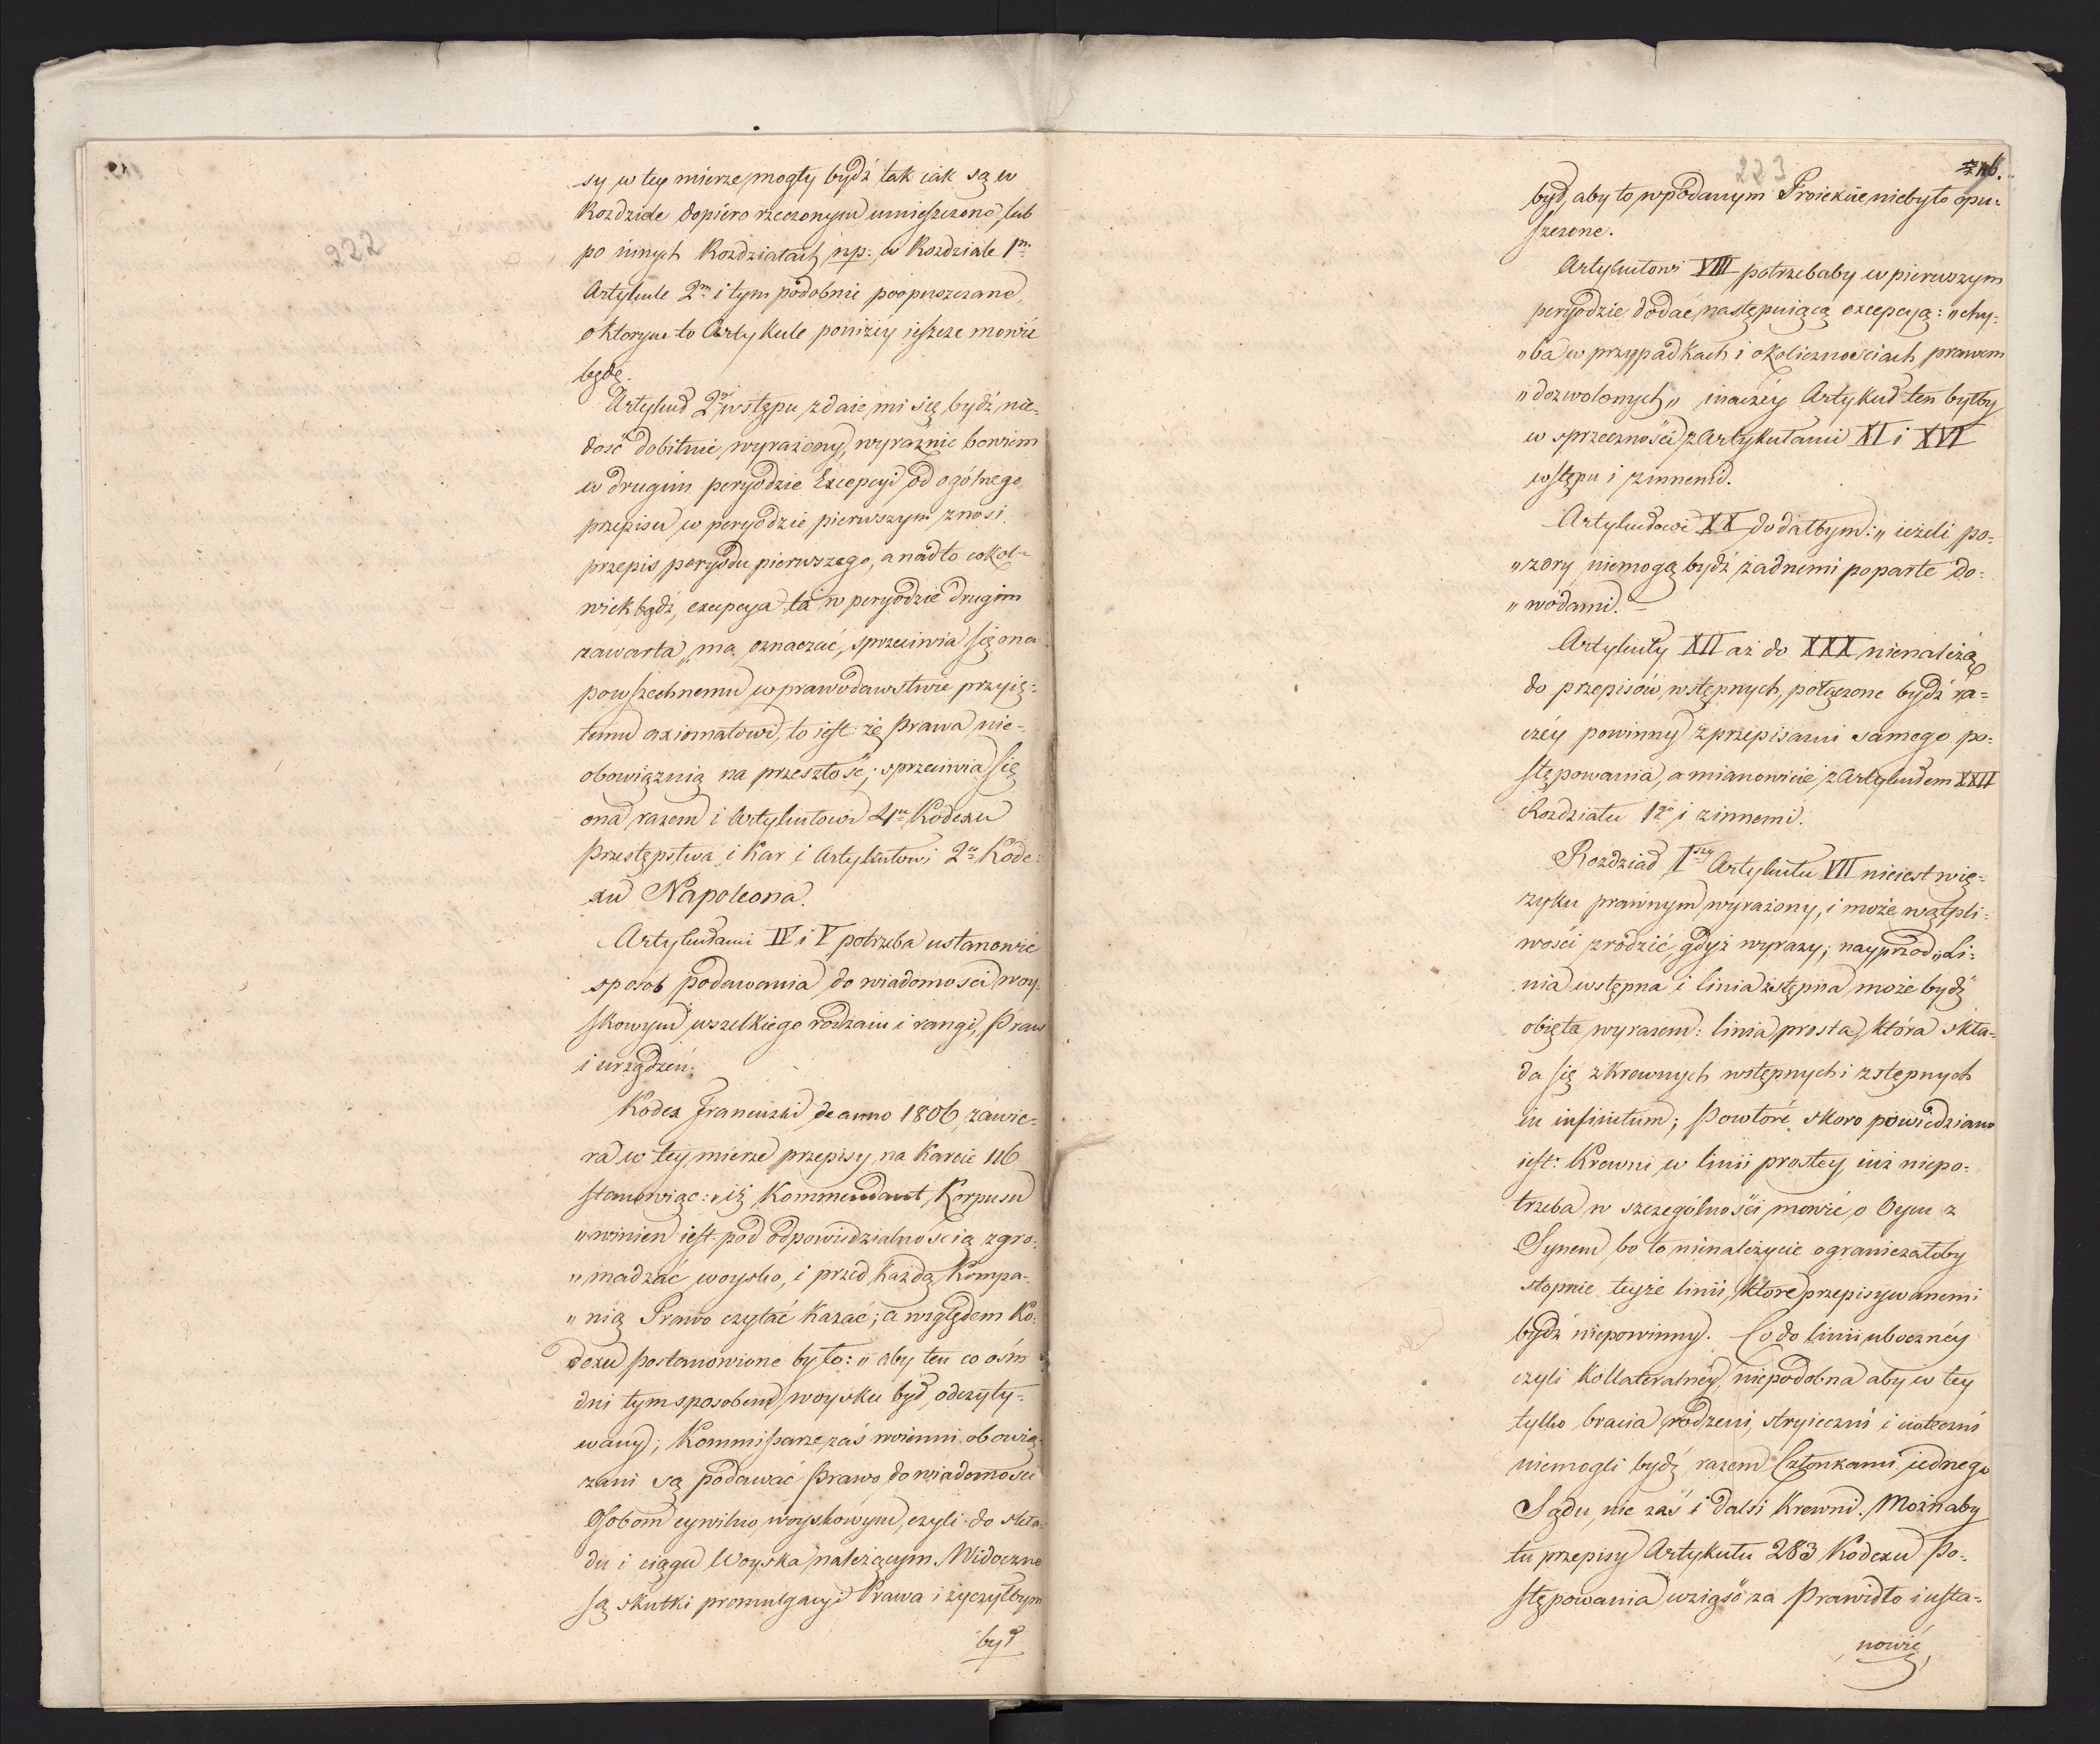 222
sy w tey mierze, mogły bydź tak iak są w
Rozdziale dopiéro rzeczonym umieszczone, lub
po innych Rozdziałach np: w Rozdziale 1m
Artykule 2m i tym podobnie poopuszczane,
o ktorym to Artykule poniżéy ieszcze mowić
będę.
Artykuł 2gi wstępu zdaie mi się bydź nie-
dość dobitnie wyrażony, wyraźnie bowiem
w drugim peryodzie Excepcyi od ogólnego
przepisu w peryodzie pierwszym znosi
przepis peryodu pierwszego, a nadto cokol-
wiekbądź, excepcya ta w peryodzie drugim
zawarta, ma oznaczać, sprzeciwia się ona
powszechnemu w prawodawstwie przyię-
temu axiomatowi, to iest: że Prawa nie-
obowiązuią na przeszłość; sprzeciwia się
ona razem i Artykułowi 4mu Kodexu
Przestępstwa i Kar i Artykułowi 2mu Kode-
xu Napoleona.
Artykułami IV i V potrzeba ustanowić
sposob podawania do wiadomosci woy-
skowym wszelkiego rodzaiu i rangi, Praw
i urządzeń.
Kodex Francuzki de anno 1806 zawie-
ra w tey mierze przepisy na Karcie 116
stanowiąc: „iż Kommendant Korpusu
„winien iest pod odpowiedzialnością zgro-
„madzać woysko, i przed każdą Kompa-
„nią Prawo czytać kazać; a względem Ko-
dexu postanowione było: „aby ten co ośm
dni tym sposobem woysku był odczyty-
wany; Kommissarze zaś woienni obowią-
zani są podawać Prawo do wiadomosci
Osobom cywilno woyskowym, czyli do skła-
du i ciągu Woyska należącym. Widoczne
są skutki promulgacyi Prawa i życzyłbym
był
223
116.
był, aby to w podanym Proiekcie niebyło opu-
szczone.
Artykułowi VIII potrzebaby w pierwszym
peryodzie dodać następuiącą excepcyą: „chy-
„ba w przypadkach i okolicznościach prawem
„dozwolonych„ inaczéy Artykuł ten byłby
w sprzeczności z Artykułami XI i XVI
wstępu i z innemi.
Artykułowi XX dodałbym: „ieżeli po-
„zory niemogą bydź żadnemi poparte do-
„wodami.
Artykuły XII aż do XXX nienależą
do przepisów wstępnych, połączone bydź ra-
czéy powinny z przepisami samego po-
stępowania, a mianowicie z Artykułem XXII
Rozdziału 1go i z innemi.
Rozdział 1szy Artykułu VII nieiest w ię-
zyku prawnym wyrażony, i może wątpli-
wości zrodzić, gdyż wyrazy; nayprzod „Li-
nia wstępna i linia zstępna może bydź
obięta wyrazem: linia prosta, która skła-
da się z Krewnych wstępnych i zstępnych
in infinitum; Powtóre skoro powiedziano
iest: Krewni w linii prostey, iuż niepo-
trzeba w szczególności mowić o Oycu z
Synem, bo to nienależycie ograniczałoby
stopnie teyże linii, które przepisywanemi
bydź niepowinny. Co do linii uboczney
czyli Kollateralnéy, niepodobna aby w tey
tylko bracia rodzeni, stryieczni i cioteczni
niemogli bydź razem Członkami iednego
Sądu, nie zaś i dalsi Krewni. Możnaby
tu przepisy Artykułu 283 Kodexu Po-
stępowania wziąść za Prawidło i usta-
nowić,